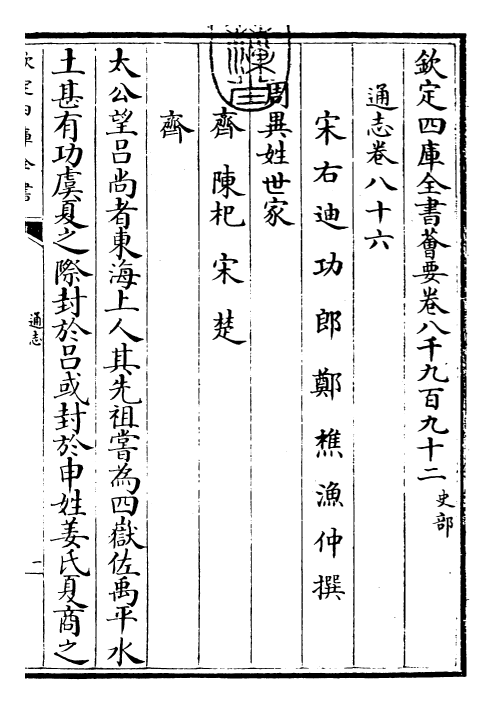 欽定四庫全書薈要卷八千九百九十二 史部
通志卷八十六
宋右迪功郎鄭樵漁仲撰
周異姓世家
齊 陳杞 宋 楚
齊
太公望呂尚者東海上人其先祖嘗為四嶽佐禹平水
土甚有功虞夏之際封於呂或封於申姓姜氏夏商之
欽定四庫全書
通志